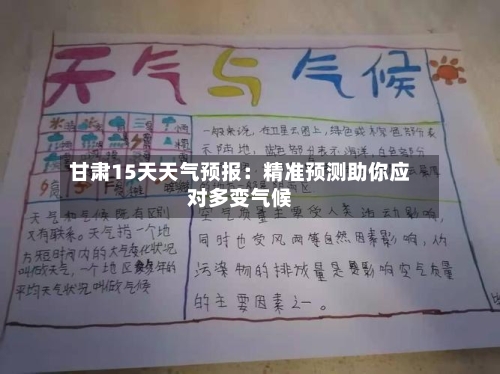 天气与气候
一般来说,在卫星云图上,绿色
示陆地,蓝色部分表示海洋,白色部分
甘肃15天天气预报：精准预测助你应
对多变气候
天气和气候既有区别
又有联系。天气指一个地
方短时间内的大气变化状况
叫做天气,一个地区多年的
平均天气状况叫做气候
空气质量主要受人类活动影响,
同时也受风雨等自然因素影响,
污染物的排放量是影响空气质量
的主要因素之一。